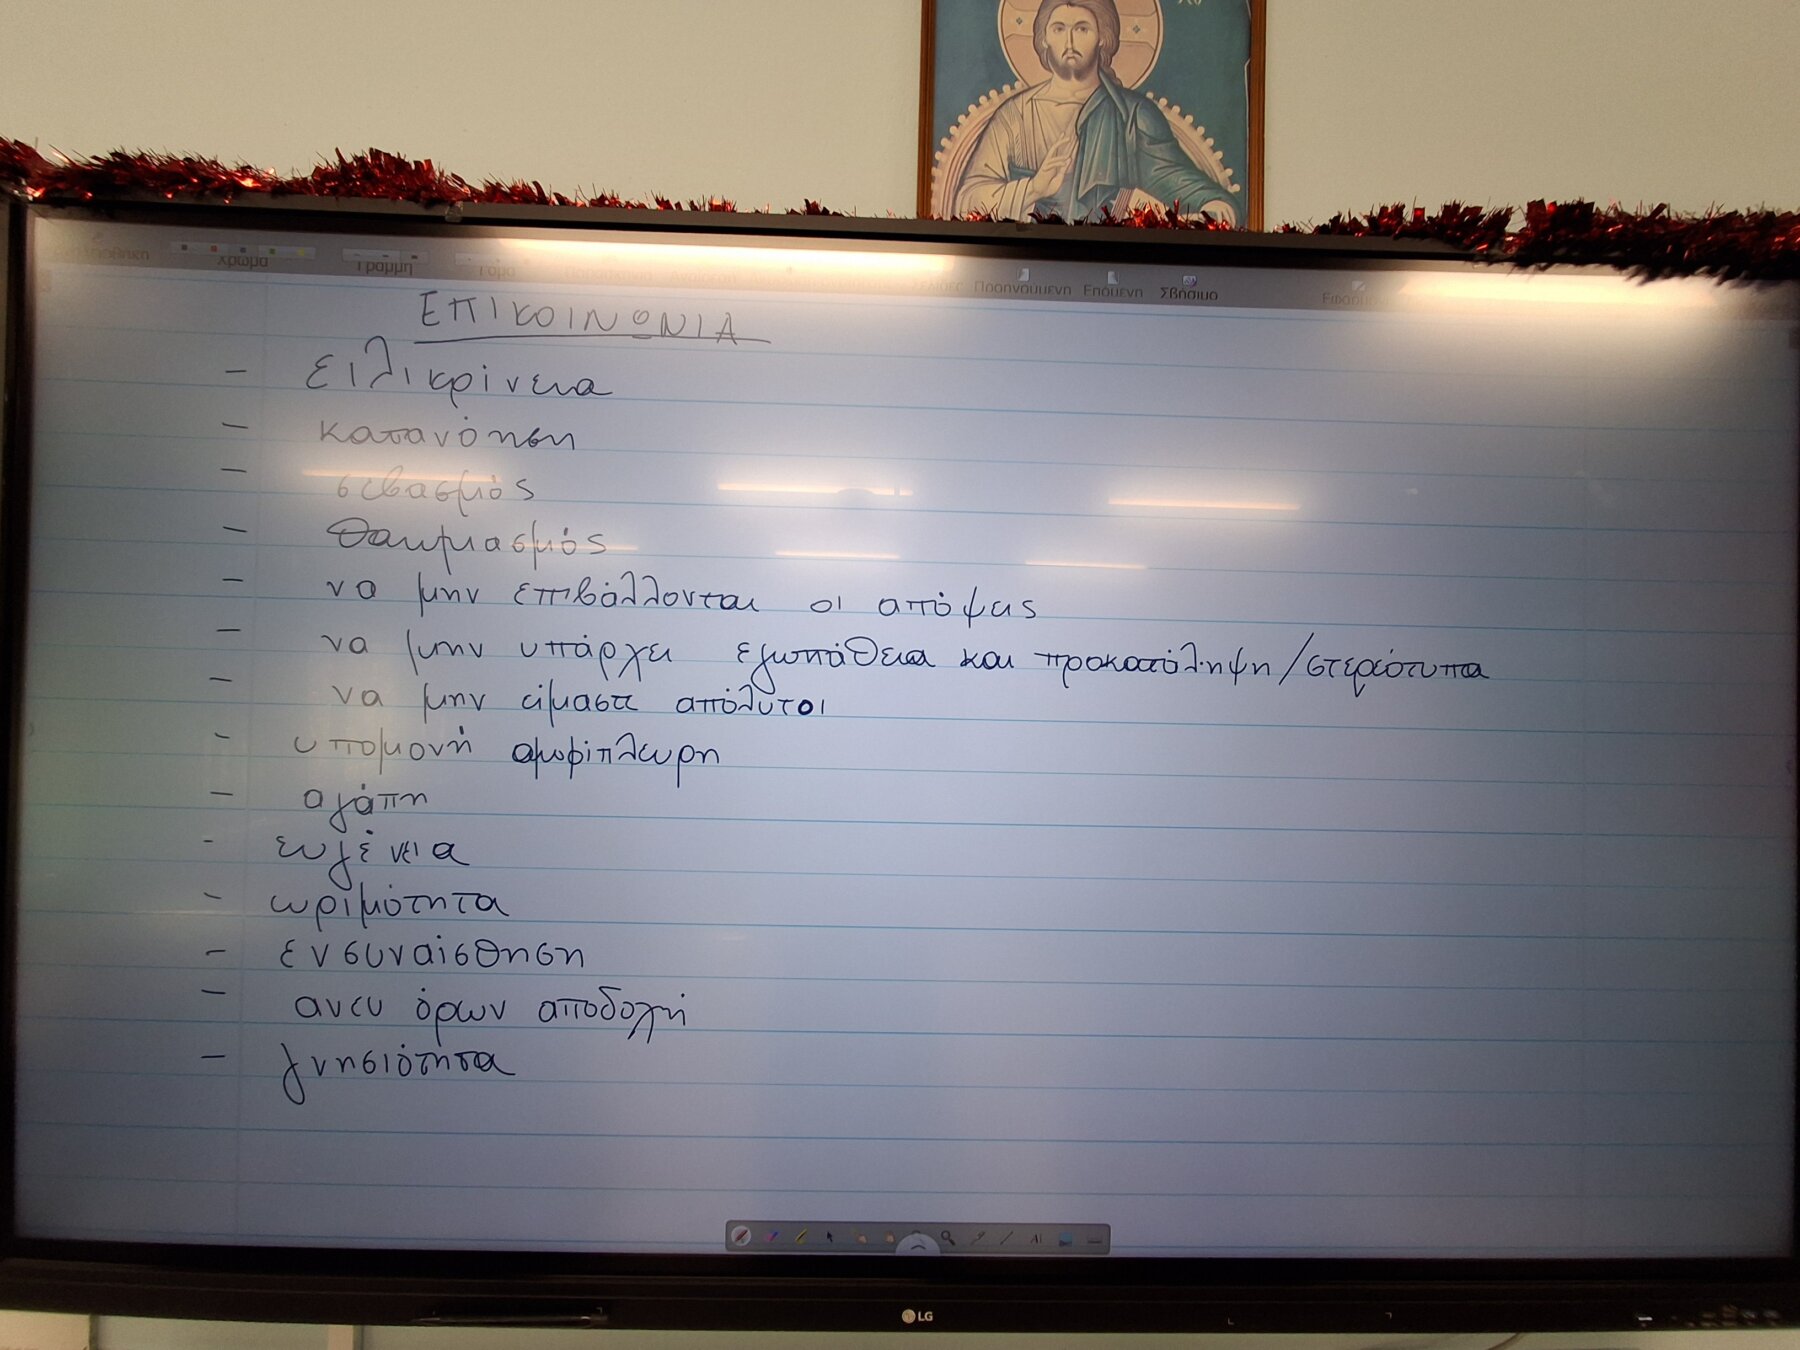 Χρώμα Γραμμή Προηγούμενη Επόμενη Σβήσιμο
ΕΠΙΚΟΙΝΩΝΙΑ
- ειλικρίνεια
- κατανόηση
- σεβασμός
- θαυμασμός
- να μην επιβάλλονται οι απόψεις
- να μην υπάρχει εγωπάθεια και προκατάληψη/στερεότυπα
- να μην είμαστε απόλυτοι
- υπομονή αμφίπλευρη
- αγάπη
- ευγένεια
- ωριμότητα
- ενσυναίσθηση
- ανευ όρων αποδοχή
- γνησιότητα
LG